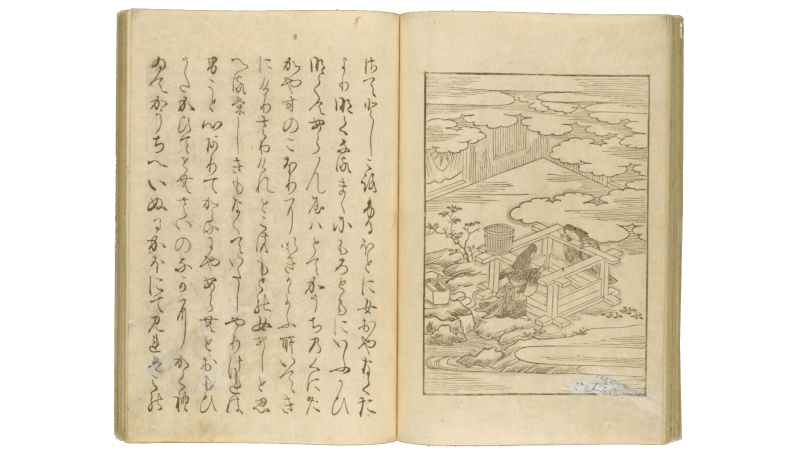 さてとしころふるほとに女おやなくた
よりなくなるまゝにもろともにいふかひ
なくてあらんやはとてかうちのくにた
かやすのこほりにいきかよふ所いてき
にけりさりけれとこのもとの女あしと思
へるけしきもなくていたしやりけれは
男こと心ありてかゝるにやあらむとおもひ
うたかひてせんさいのなかにかくれ
ゐてかうちへいぬるかほにて見れはこの